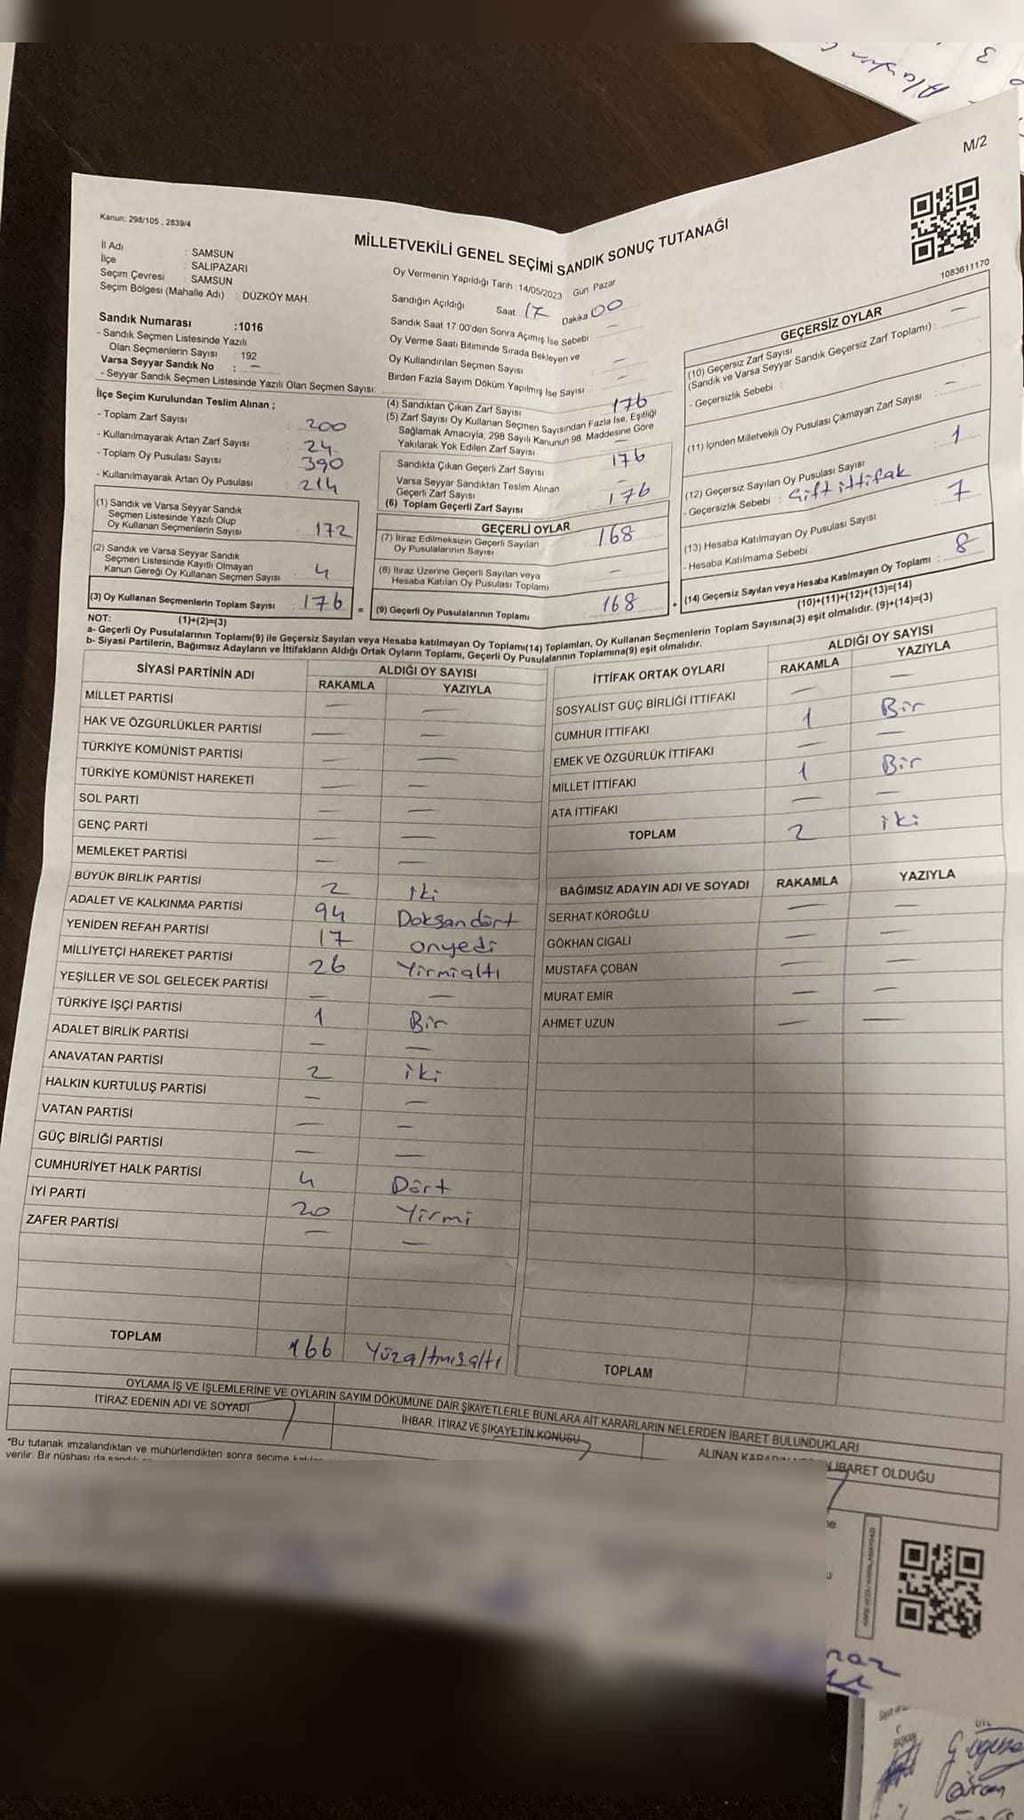 M/2
Kanun: 298/105 , 2839/4
MİLLETVEKİLİ GENEL SEÇİMİ SANDIK SONUÇ TUTANAĞI
1083611170
İl Adı : SAMSUN
İlçe : SALIPAZARI
Seçim Çevresi : SAMSUN
Seçim Bölgesi (Mahalle Adı) : DÜZKÖY MAH.
Sandık Numarası :1016
- Sandık Seçmen Listesinde Yazılı
Olan Seçmenlerin Sayısı : 192
Varsa Seyyar Sandık No : —
- Seyyar Sandık Seçmen Listesinde Yazılı Olan Seçmen Sayısı:
İlçe Seçim Kurulundan Teslim Alınan ;
- Toplam Zarf Sayısı 200
- Kullanılmayarak Artan Zarf Sayısı 24
- Toplam Oy Pusulası Sayısı 390
- Kullanılmayarak Artan Oy Pusulası 214
(1) Sandık ve Varsa Seyyar Sandık
Seçmen Listesinde Yazılı Olup
Oy Kullanan Seçmenlerin Sayısı 172
(2) Sandık ve Varsa Seyyar Sandık
Seçmen Listesinde Kayıtlı Olmayan
Kanun Gereği Oy Kullanan Seçmen Sayısı 4
(3) Oy Kullanan Seçmenlerin Toplam Sayısı : 176 =
(1)+(2)=(3)
Oy Vermenin Yapıldığı Tarih : 14/05/2023 Gün Pazar
Sandığın Açıldığı Saat 17 Dakika 00
Sandık Saat 17:00'den Sonra Açımış İse Sebebi —
Oy Verme Saati Bitiminde Sırada Bekleyen ve
Oy Kullandırılan Seçmen Sayısı —
Birden Fazla Sayım Döküm Yapılmış İse Sayısı —
(4) Sandıktan Çıkan Zarf Sayısı 176
(5) Zarf Sayısı Oy Kullanan Seçmen Sayısından Fazla İse, Eşitliği
Sağlamak Amacıyla, 298 Sayılı Kanunun 98. Maddesine Göre
Yakılarak Yok Edilen Zarf Sayısı —
Sandıkta Çıkan Geçerli Zarf Sayısı 176
Varsa Seyyar Sandıktan Teslim Alınan
Geçerli Zarf Sayısı —
(6) Toplam Geçerli Zarf Sayısı 176
GEÇERLİ OYLAR
(7) İtiraz Edilmeksizin Geçerli Sayılan
Oy Pusulalarının Sayısı 168
(8) İtiraz Üzerine Geçerli Sayılan veya
Hesaba Katılan Oy Pusulası Toplamı —
(9) Geçerli Oy Pusulalarının Toplamı 168 +
GEÇERSİZ OYLAR
(10) Geçersiz Zarf Sayısı
(Sandık ve Varsa Seyyar Sandık Geçersiz Zarf Toplamı) : —
- Geçersizlik Sebebi :
(11) İçinden Milletvekili Oy Pusulası Çıkmayan Zarf Sayısı —
(12) Geçersiz Sayılan Oy Pusulası Sayısı 1
- Geçersizlik Sebebi : Çift ittifak
(13) Hesaba Katılmayan Oy Pusulası Sayısı 7
- Hesaba Katılmama Sebebi :
(14) Geçersiz Sayılan veya Hesaba Katılmayan Oy Toplamı : 8
(10)+(11)+(12)+(13)=(14)
NOT:
a- Geçerli Oy Pusulalarının Toplamı(9) ile Geçersiz Sayılan veya Hesaba katılmayan Oy Toplamı(14) Toplamları, Oy Kullanan Seçmenlerin Toplam Sayısına(3) eşit olmalıdır. (9)+(14)=(3)
b- Siyasi Partilerin, Bağımsız Adayların ve İttifakların Aldığı Ortak Oyların Toplamı, Geçerli Oy Pusulalarının Toplamına(9) eşit olmalıdır.
SİYASİ PARTİNİN ADI ALDIĞI OY SAYISI
RAKAMLA YAZIYLA
MİLLET PARTİSİ — —
HAK VE ÖZGÜRLÜKLER PARTİSİ — —
TÜRKİYE KOMÜNİST PARTİSİ — —
TÜRKİYE KOMÜNİST HAREKETİ — —
SOL PARTİ — —
GENÇ PARTİ — —
MEMLEKET PARTİSİ — —
BÜYÜK BİRLİK PARTİSİ 2 İki
ADALET VE KALKINMA PARTİSİ 94 Doksandört
YENİDEN REFAH PARTİSİ 17 onyedi
MİLLİYETÇİ HAREKET PARTİSİ 26 Yirmialtı
YEŞİLLER VE SOL GELECEK PARTİSİ — —
TÜRKİYE İŞÇİ PARTİSİ 1 Bir
ADALET BİRLİK PARTİSİ — —
ANAVATAN PARTİSİ 2 iki
HALKIN KURTULUŞ PARTİSİ — —
VATAN PARTİSİ — —
GÜÇ BİRLİĞİ PARTİSİ — —
CUMHURİYET HALK PARTİSİ 4 Dört
İYİ PARTİ 20 Yirmi
ZAFER PARTİSİ — —
TOPLAM 166 Yüzaltmışaltı
İTTİFAK ORTAK OYLARI ALDIĞI OY SAYISI
RAKAMLA YAZIYLA
SOSYALİST GÜÇ BİRLİĞİ İTTİFAKI — —
CUMHUR İTTİFAKI 1 Bir
EMEK VE ÖZGÜRLÜK İTTİFAKI — —
MİLLET İTTİFAKI 1 Bir
ATA İTTİFAKI — —
TOPLAM 2 iki
BAĞIMSIZ ADAYIN ADI VE SOYADI RAKAMLA YAZIYLA
SERHAT KÖROĞLU — —
GÖKHAN CIGALI — —
MUSTAFA ÇOBAN — —
MURAT EMİR — —
AHMET UZUN — —
TOPLAM
OYLAMA İŞ VE İŞLEMLERİNE VE OYLARIN SAYIM DÖKÜMÜNE DAİR ŞİKAYETLERLE BUNLARA AİT KARARLARIN NELERDEN İBARET BULUNDUKLARI
İTİRAZ EDENİN ADI VE SOYADI
İHBAR, İTİRAZ VE ŞİKAYETİN KONUSU
ALINAN İBARET OLDUĞU
*Bu tutanak imzalandıktan ve mühürlendikten sonra seçime
verilir. Bir nüshası da